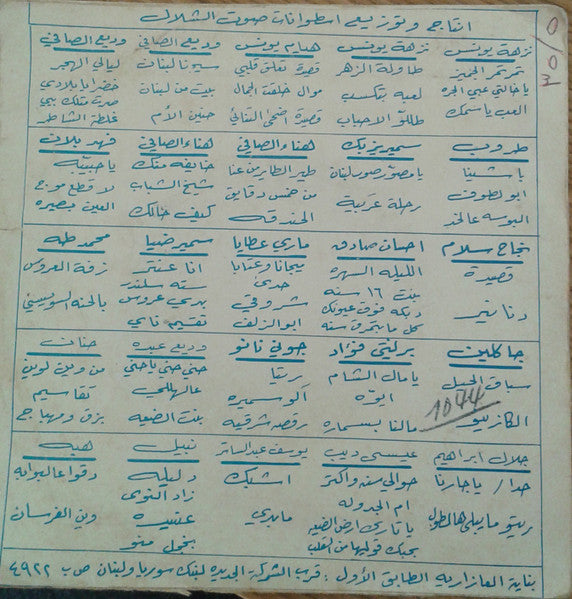 انتاج وتوزيع اسطوانات صوت الشلال
نزهة يونس نزهة يونس هيام يونس وديع الصافي وديع الصافي
تمر تمر الجميز طاولة الزهر قصيدة تعلق قلبي سيرنا لبنان ليالي الهجير
يا خالتي عبي الجره لعبه بتكسب موال خلقت الجمال بيت من لبنان خضرا يا بلادي
العب يا سمك طللو الاحباب قصيدة اضحى التنائي حنين الأم صرت متلك بيي
غلطة الشاطر
طروب سمير يزبك هناء الصافي هناء الصافي فهد بلان
يا ستينا يا مصور صور لبنان طير الطايرين عنا خايفه منك يا حبيبه
ابو لطوف رحلة عربية من خمس دقايق شيخ الشباب لا قطع موج
البوسه عالخد الحندقه كيف حالك العين بصيره
نجاح سلام احسان صادق ماري عطايا سمير ضيا محمد طه
قصيدة الليله السهره ميجانا وعتابا انا عنتر زفة العروس
دنانير بنت ١٦ سنه حدى سته سلندر بالحنه السويسي
دبكه فوق عيونك شروقي بدي عروس
كل ما بتمرق سنه ابو الزلف تقسيم ناي
جاكلين برلنتي فؤاد جوني نانو وديع عبده حنان
سباق الخيل يا مال الشام ريتا حني حني يا حبي من وين لوين
الكازينو ايوه آلو سميره عالهللي تقاسيم
مالنا بسمساره رقصه شرقيه بنت الضيعه بزق ومهباج
جلال ابراهيم عيسى ديب يوسف عبد الساتر نبيل هبه
حدا / يا جارنا حوالي سنه واكتر اشبك دليله دقوا عالبوابه
ريتو ما يبلى هالطول ام الجدوله ما بدي زاد النوى وين الفرسان
يا تاريك ارض الضيعه عتبيه
بحبك قوليها من القلب بخجل منو
بناية العازاريه الطابق الأول : قرب الشركة الجديده لبنك سوريا ولبنان ص ب ٤٩٢٢
1044